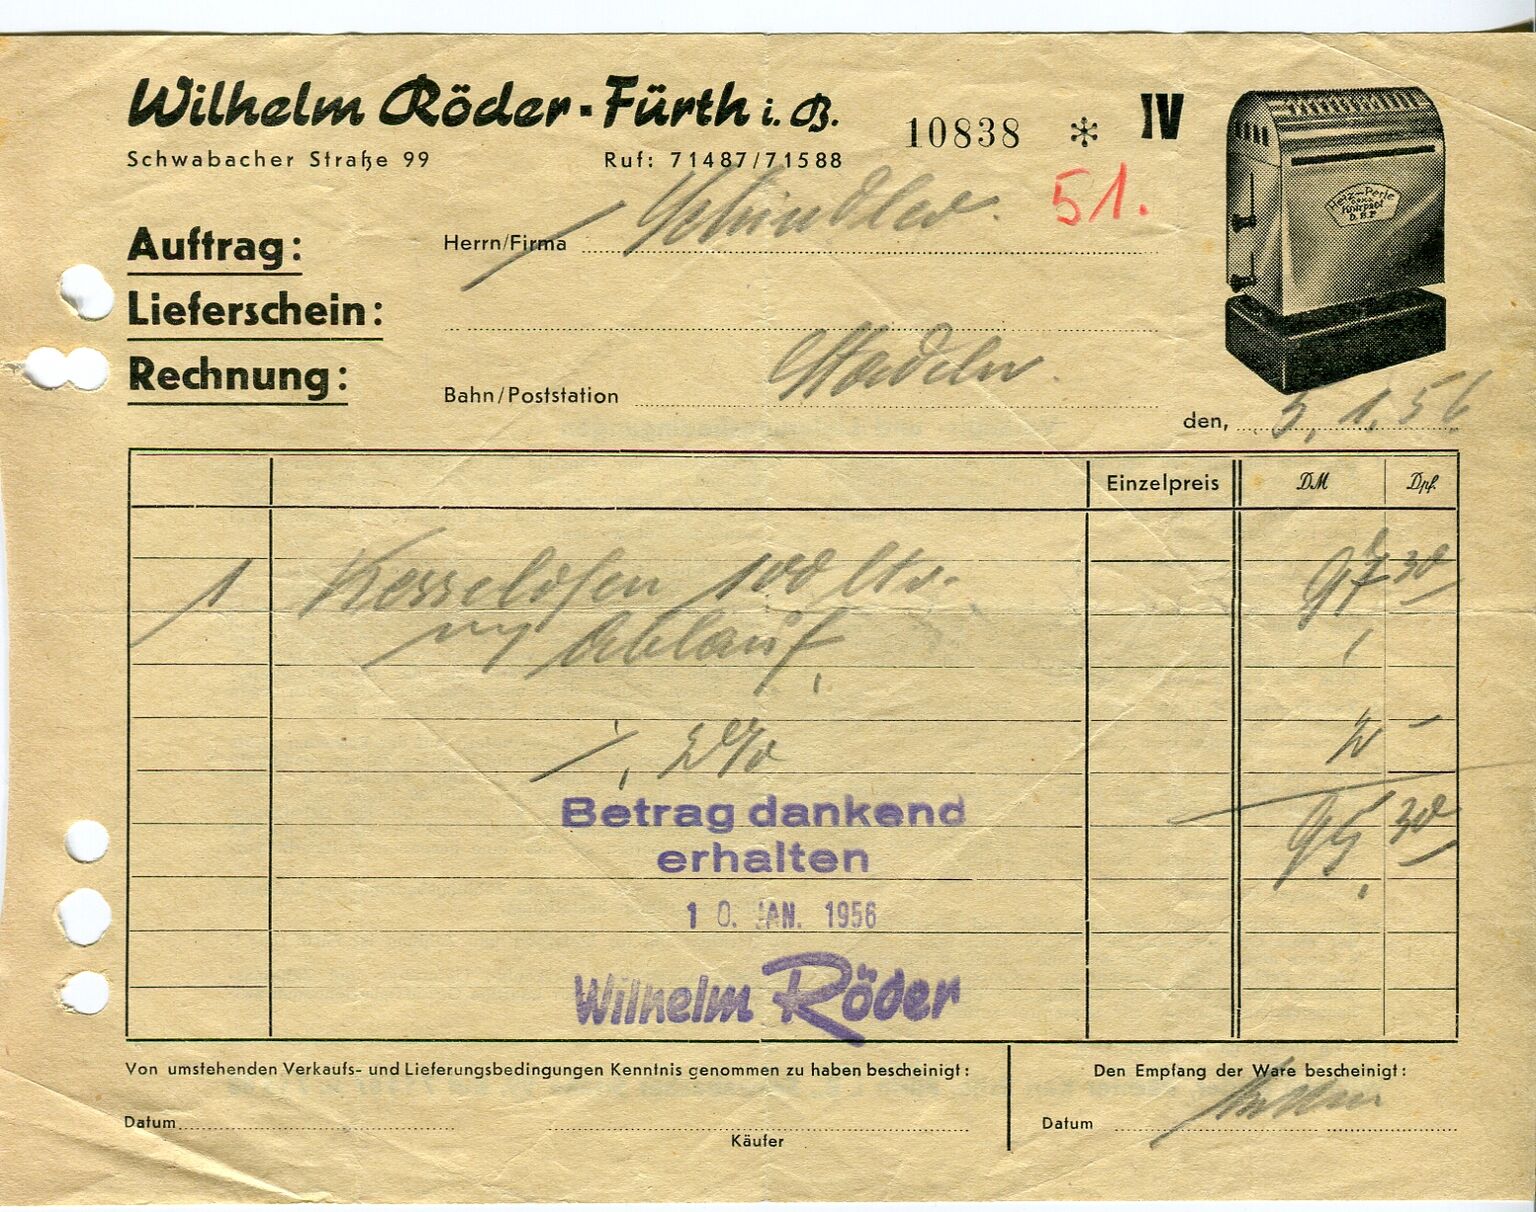 Wilhelm Röder - Fürth i. B.
10838 * IV
Schwabacher Straße 99 Ruf: 71487/71588
51.
Heiz-Perle
D.B.P.
Auftrag:
Herrn/Firma Schindler.
Lieferschein:
Rechnung:
Bahn/Poststation Stadeln.
den, 5.1.56
Einzelpreis DM Dpf.
1 Kesselofen 100 ltr. 97 30
m/ Ablauf,
./. 2% 2 –
95, 30
Betrag dankend
erhalten
10. JAN. 1956
Wilhelm Röder
Von umstehenden Verkaufs- und Lieferungsbedingungen Kenntnis genommen zu haben bescheinigt:
Den Empfang der Ware bescheinigt:
Datum
Käufer
Datum